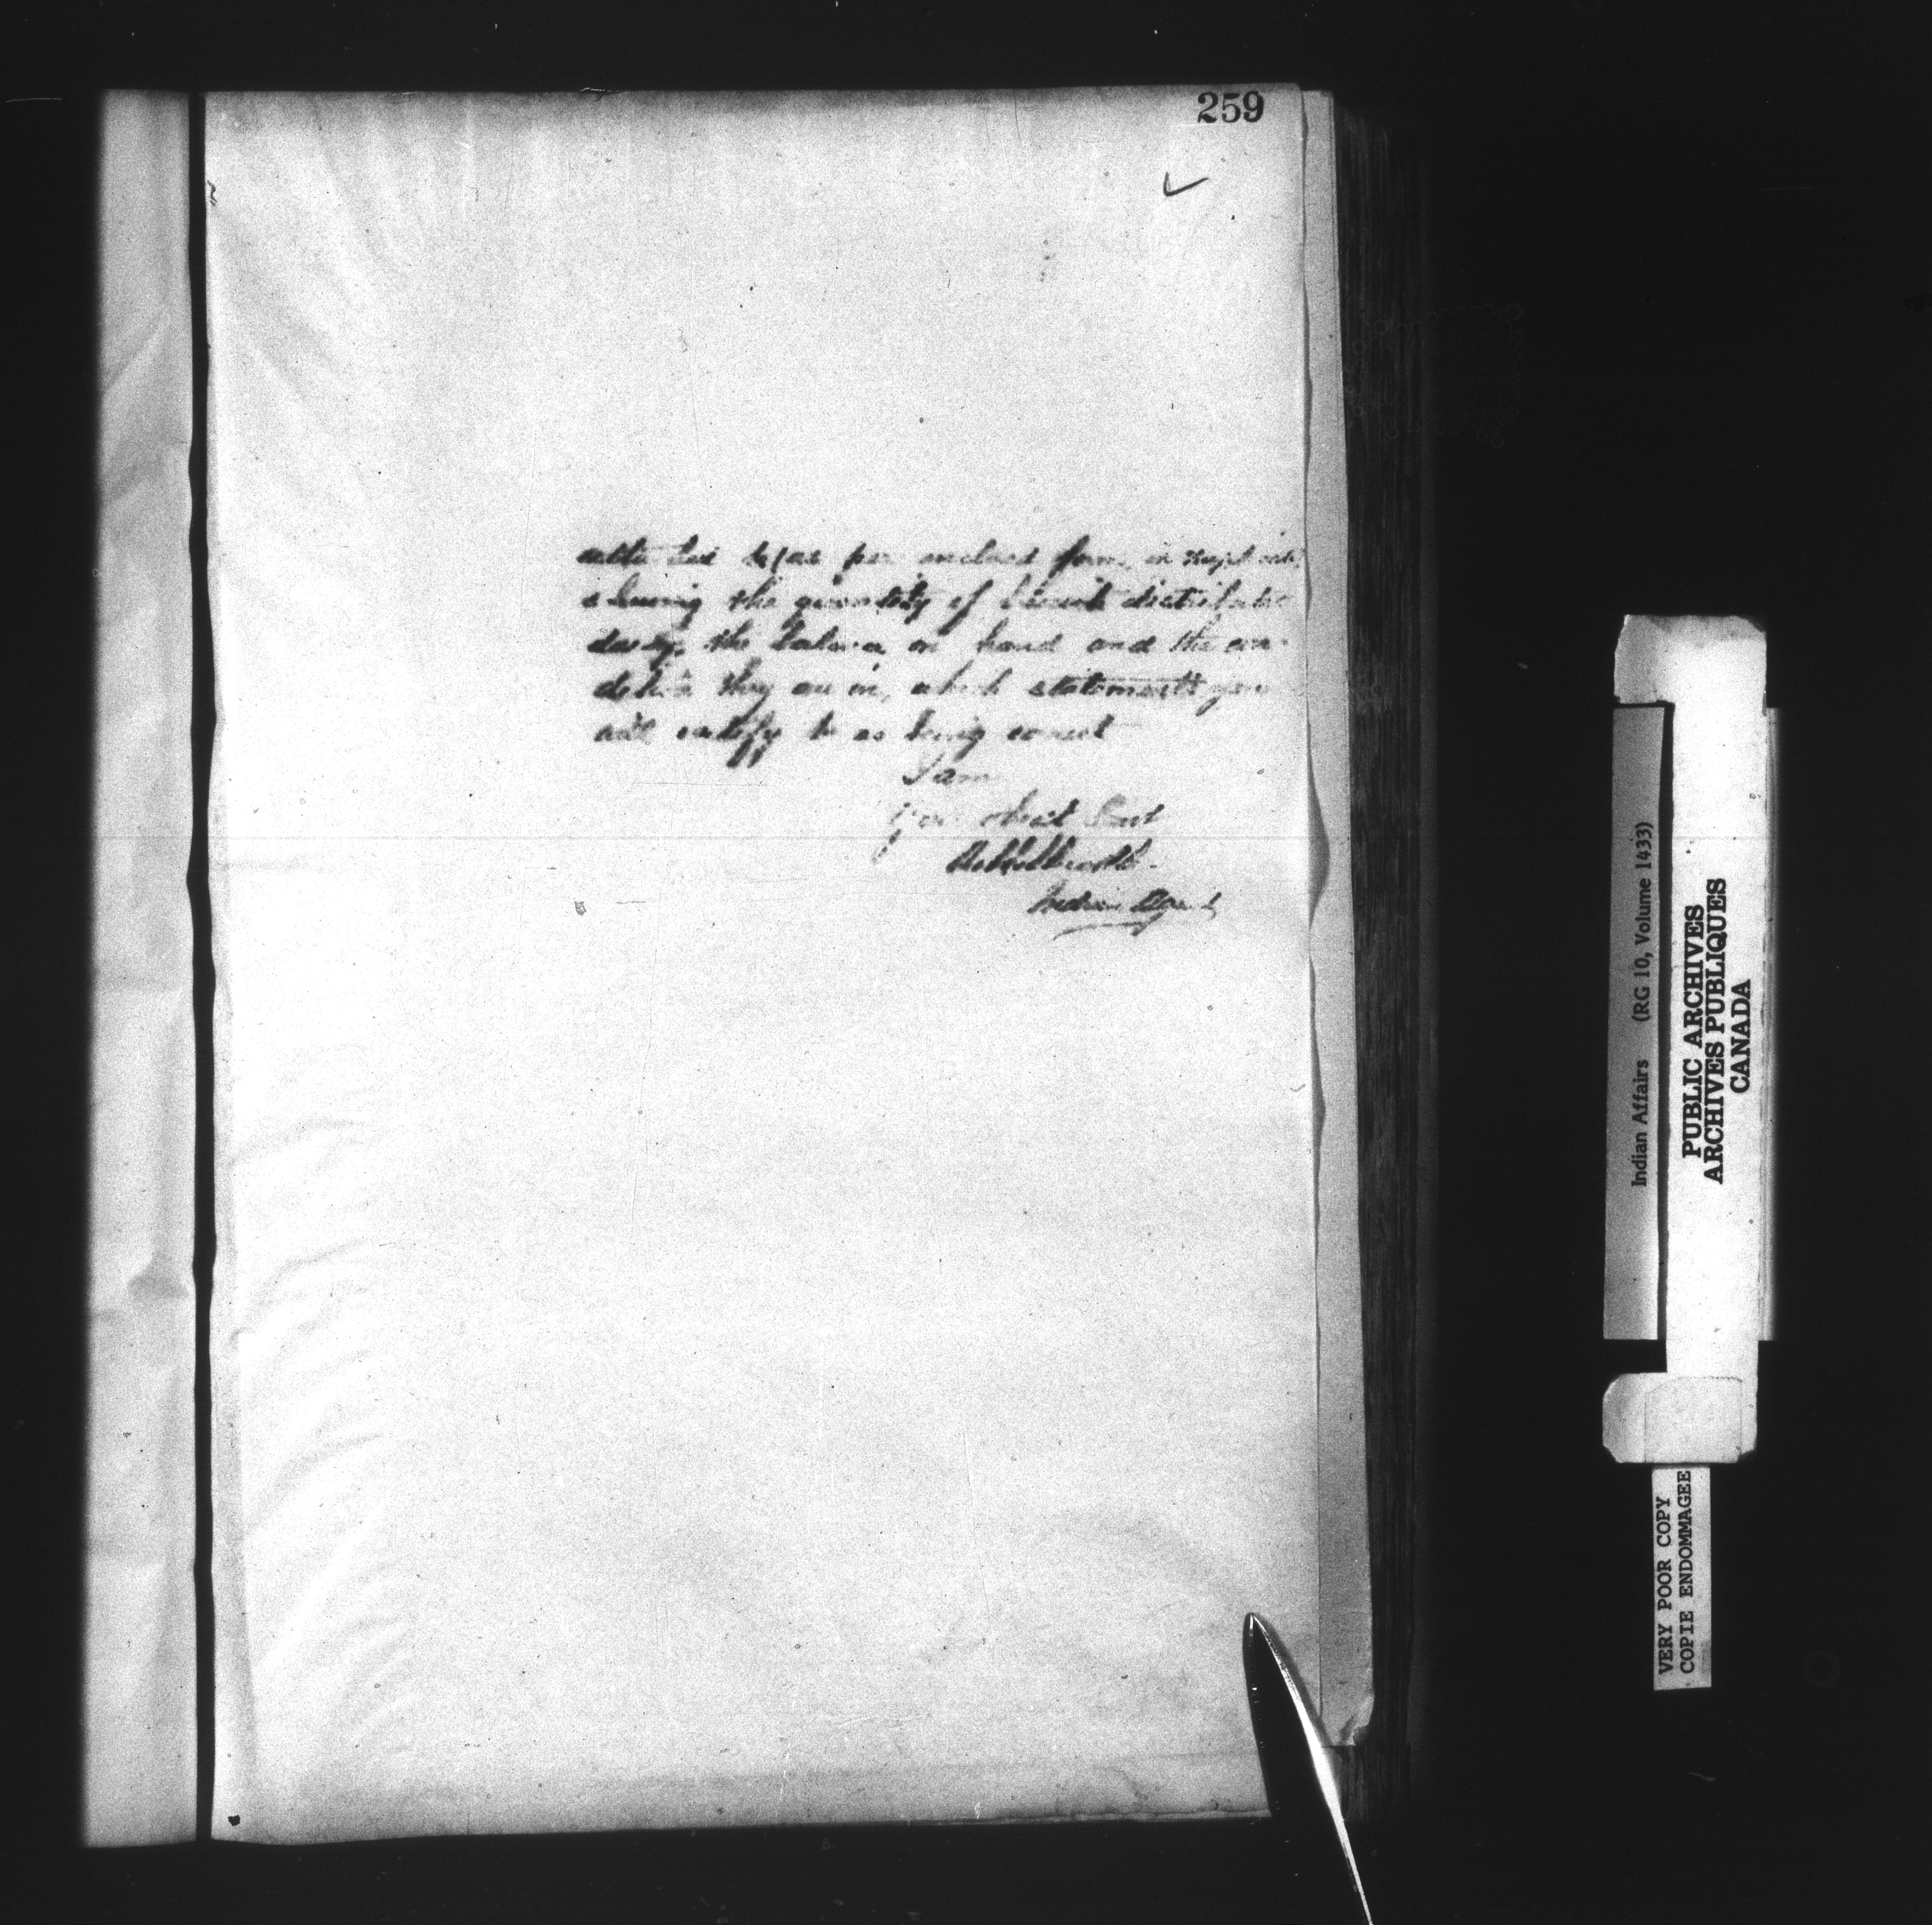 259
as per enclosed form, in
showing the quantity of biscuit
the balance on hand and the con-
dition they are in, which statements you
will certify to as being correct
I am
Your obedt Servt
Indian Agent
Indian Affairs (RG 10, Volume 1433)
PUBLIC ARCHIVES
ARCHIVES PUBLIQUES
CANADA
VERY POOR COPY
COPIE ENDOMMAGEE